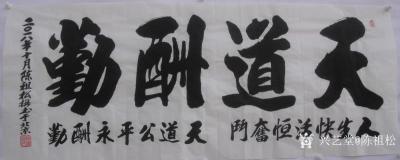 天道酬勤
人生快活恒奮鬥
天道公平永酬勤
二〇一八年十月陈祖松书于北京
兴艺堂@陈祖松